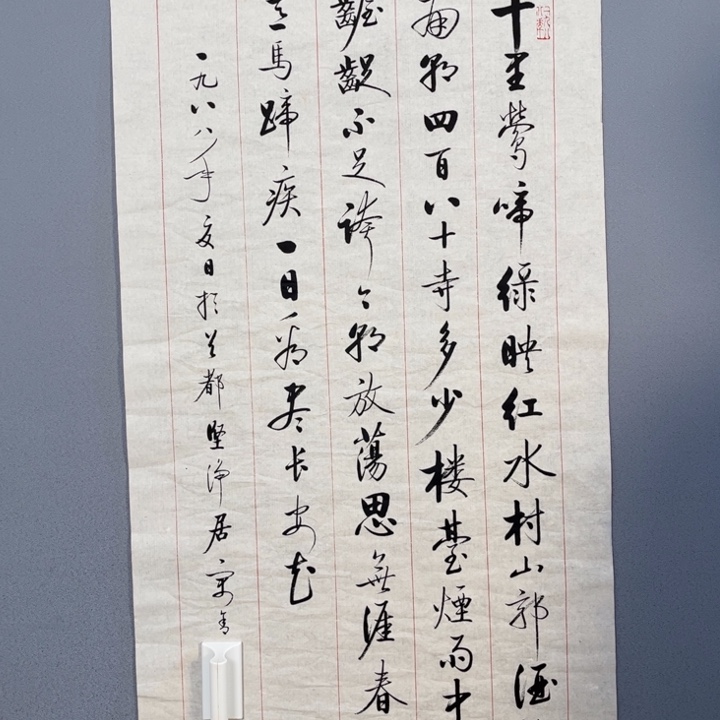 千里鶯啼緑映红水村山郭酒
南朝四百八十寺多少楼臺煙雨中
齷齪不足誇今朝放蕩思無涯春
意馬蹄疾一日看尽长安花
一九八八年夏日於首都坚净居